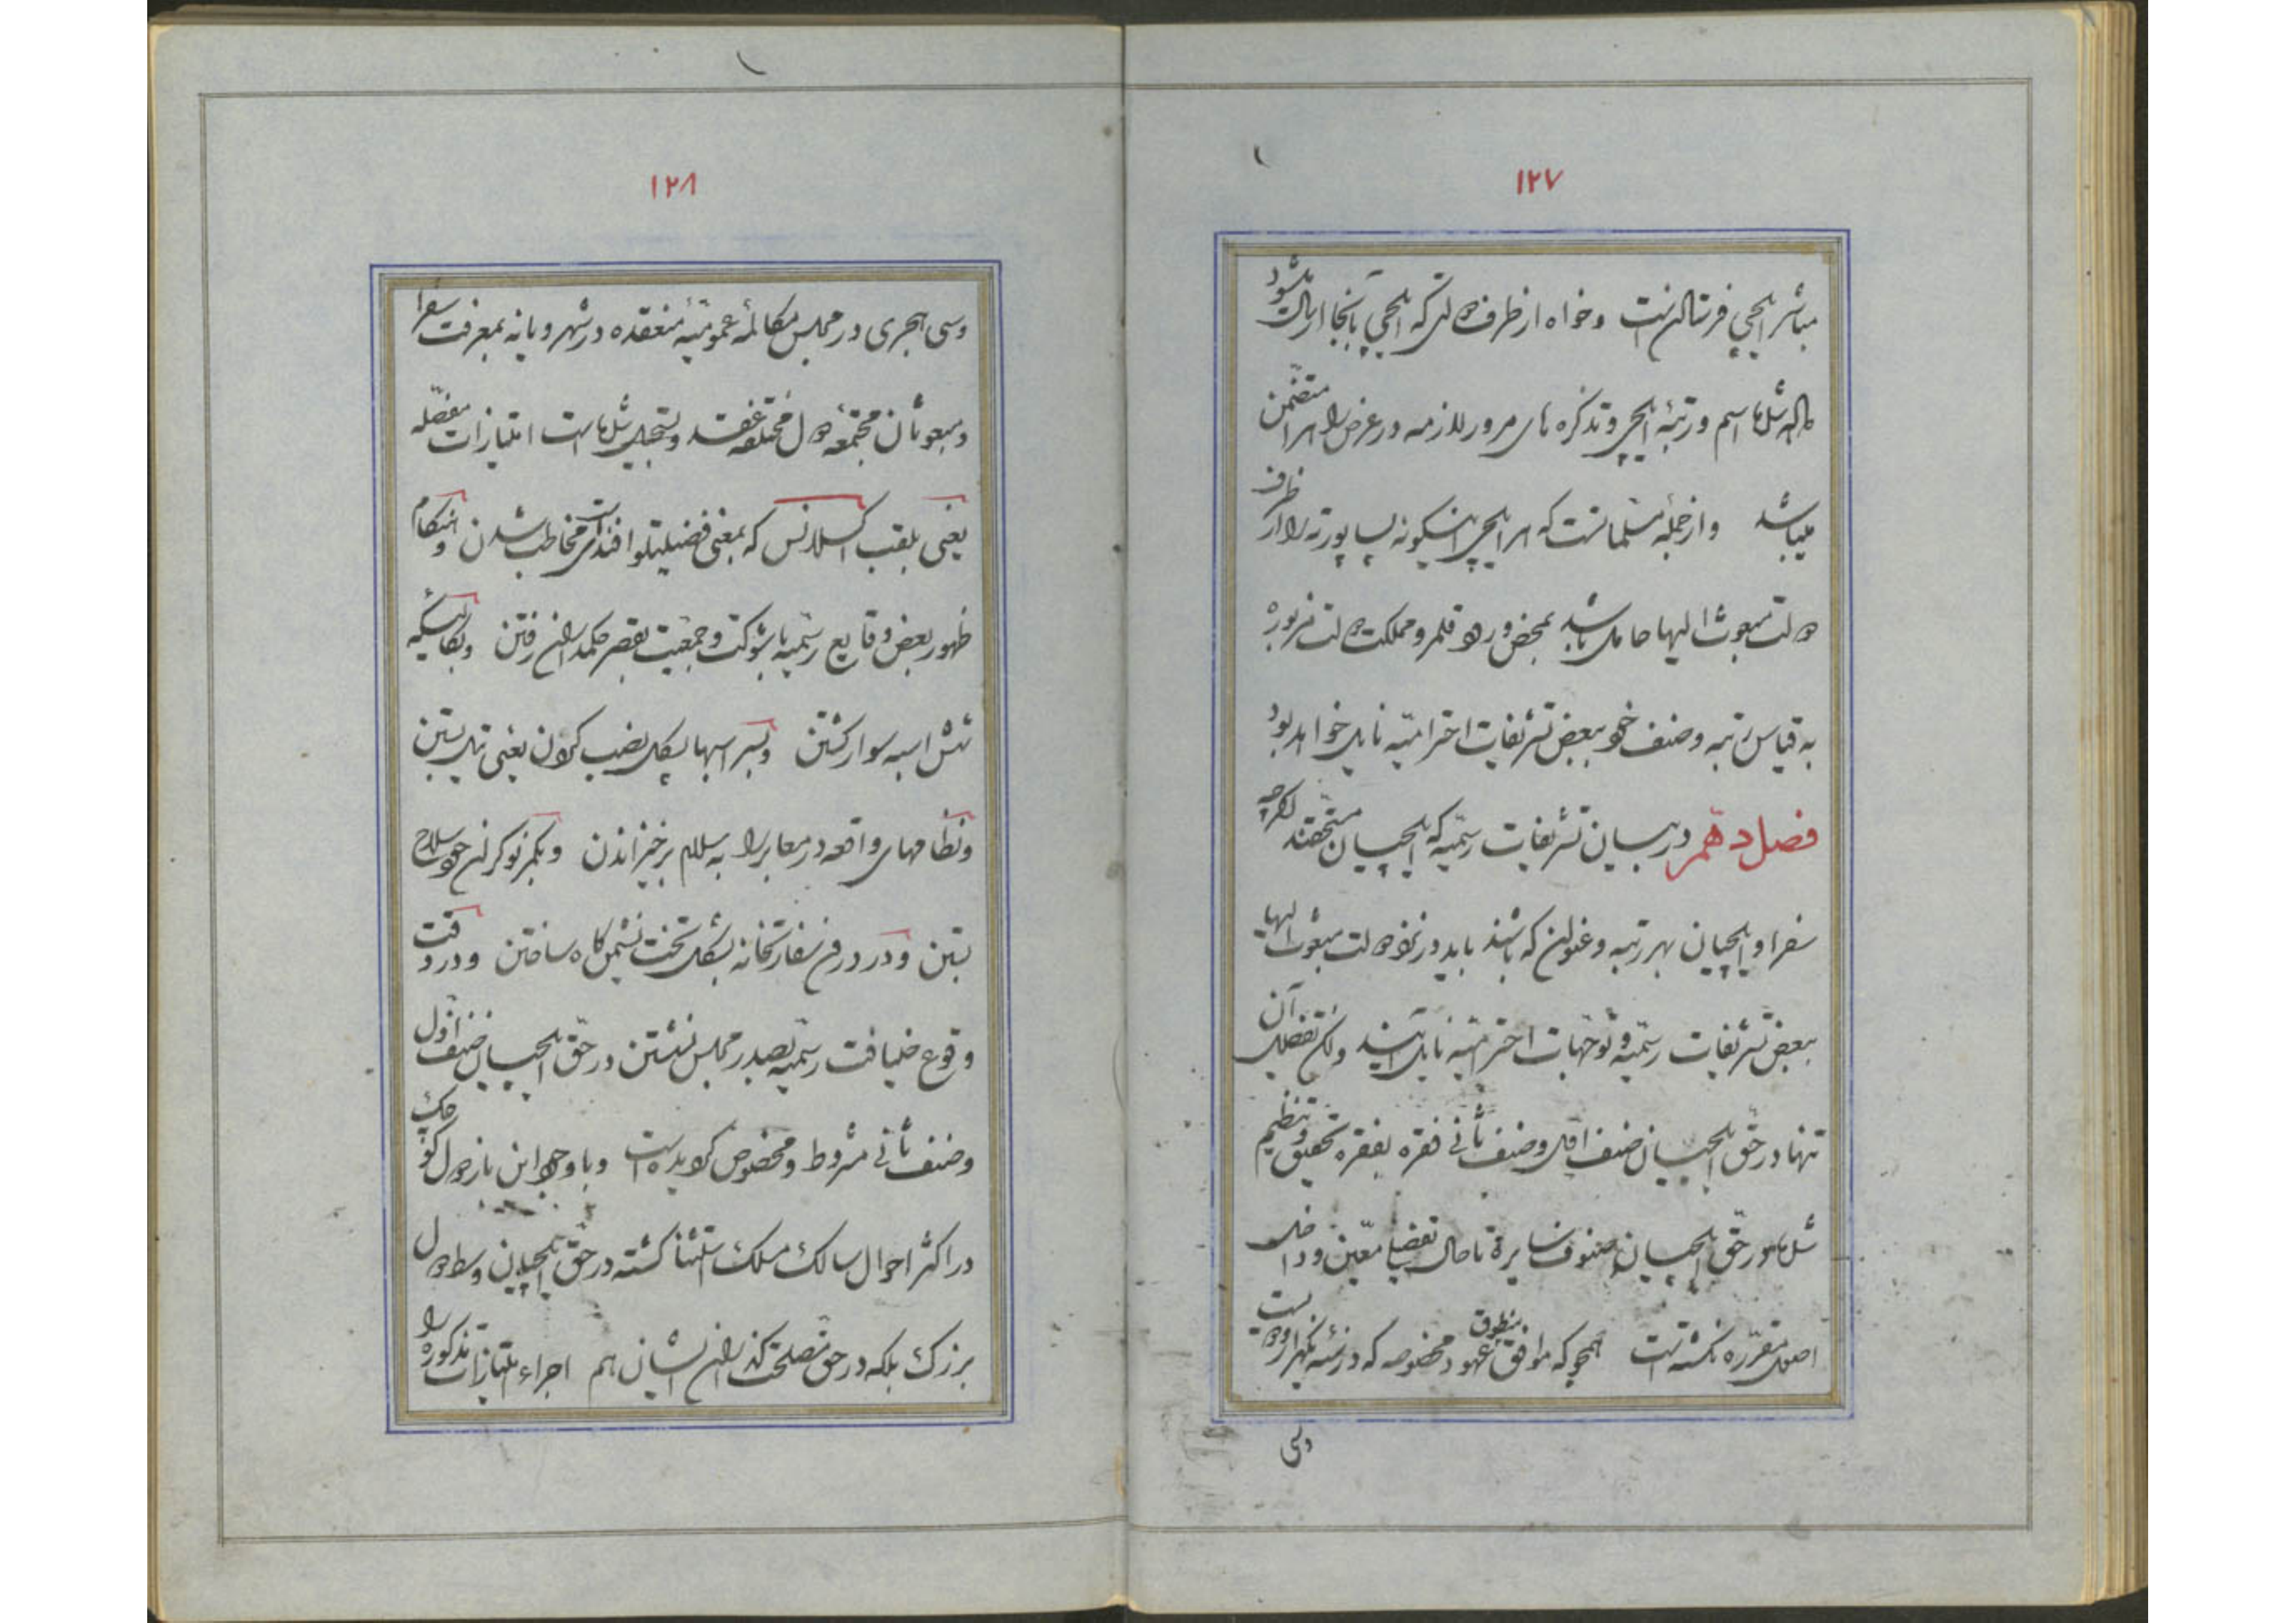 ۱۲۷
مباشر ایلچی فرستادنست و خواه از طرف دولتی که ایلچی بآنجا ارسال میشود
اسم و رتبهٔ ایلچی و تذکره های مرور لازمه در عرض راه را متضمن
میباشد و از جملهٔ مسلماتست که هر ایلچی اینگونه پساپورته را از طرف
دولت مبعوث الیها حامل باشد بمحض ورود قلمرو مملکت دولت مزبوره
به قیاس رتبه و صنف خود ببعض تشریفات احترامیّه نایل خواهد بود
فصل دهم در بیان تشریفات رسمیّه که ایلچیان مستحقند اگرچه
سفرا و ایلچیان بهر رتبه و عنوان که باشند باید در نزد دولت مبعوث الیها
ببعض تشریفات رسمیّه و توجّهات احترامیّه نایل آیند ولکن تفصیل آن
تنها در حقّ ایلچیان صنف اوّل و صنف ثانی فقره بفقره تحقیق و تنظیم
شده در حقّ ایلچیان صنوف سایره تا حال تفصیلی معیّن و داخل
اصول مقرّره نگشته است همچو که موافق منطوق عهود مخصوصه که در سنه یکهزار و دویست
وسی
۱۲۸
وسی هجری در مجلس مکالمهٔ عمومیّهٔ منعقده در شهر ویانه بمعرفت سفرا
و مبعوثان مجتمعه دول مختلفه عقد و تسجیل شده است امتیازات مفصّله
یعنی بلقب اکسلانس که بمعنی فضیلتلو افندیست مخاطب شدن و هنگام
ظهور بعض وقایع رسمیّه با شوکت و جمعیت بقصر حکمداران رفتن و بکالسکه
شش اسبه سوار گشتن و بسر اسبها پسکل نصب کردن یعنی تل بستن
و نظامهای واقعه در معابر را به سلام برخیزاندن و بکمر نوکران خود سلاح
بستن و در درون سفارتخانه بشکل تخت نشیمن گاه ساختن و در وقت
وقوع ضیافت رسمیّه بصدر مجلس نشستن در حقّ ایلچیان صنف اوّل
و صنف ثانی مشروط و مخصوص گردیده است و با وجود این باز دول کوچک
در اکثر احوال سالک مسلک استثنا گشته در حقّ ایلچیان وسط دول
بزرگ بلکه در حق مصلحت گذاران ایشان هم اجراء امتیازات مذکوره را